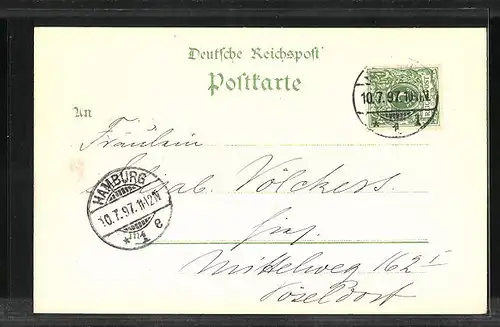 Deutsche Reichspost
Postkarte
An
10.7.97.
Fräulein
Elisab. Völckers.
HAMBURG
10.7.97.11-12N
* 1 e
hier
Mittelweg 162 I
Pöseldorf